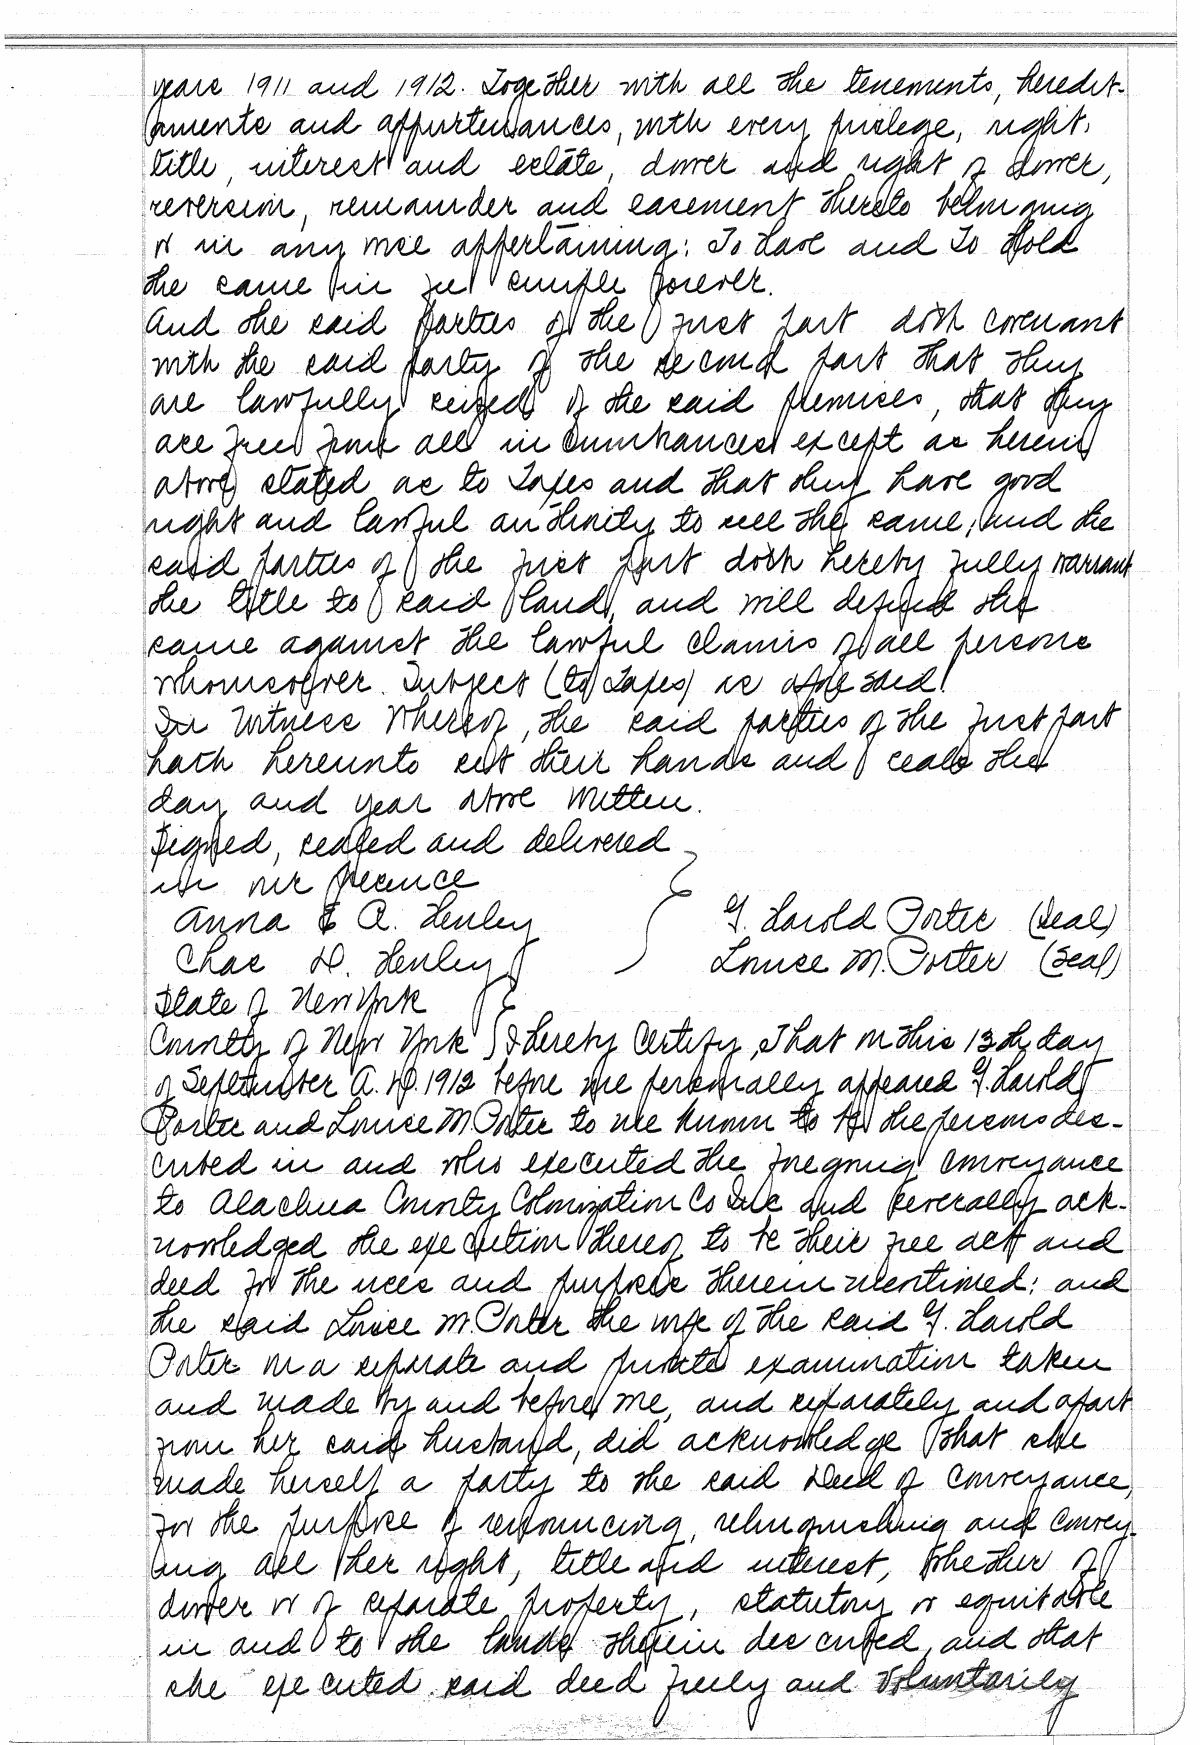 years 1911 and 1912. Together with all the tenements, heredit-
aments and appurtenances, with every privilege, right,
title, interest and estate, dower and right of dower,
reversion, remainder and easement thereto belonging
or in any wise appertaining: To Have and To Hold
the same in fee simple forever.
And the said parties of the first part doth covenant
with the said party of the second part that they
are lawfully seized of the said premises, that they
are free from all incumbrances except as herein
above stated as to Taxes and that they have good
right and lawful authority to sell the same; and the
said parties of the first part doth hereby fully warrant
the title to said land, and will defend the
same against the lawful claims of all persons
whomsoever. Subject (to Taxes) as aforesaid.
In Witness Whereof, the said parties of the first part
hath hereunto set their hands and seals the
day and year above written.
Signed, sealed and delivered
in our presence
Anna E A. Henley
G. Harold Porter (Seal)
Chas D. Henley
Louise M. Porter (Seal)
State of New York
County of New York } I hereby Certify, That on this 13th day
of September A.D. 1912 before me personally appeared G. Harold
Porter and Louise M Porter to me known to be the persons des-
cribed in and who executed the foregoing conveyance
to Alachua County Colonization Co Inc and severally ack-
nowledged the execution thereof to be their free act and
deed for the uses and purposes therein mentioned; and
the said Louise M. Porter the wife of the said G. Harold
Porter on a separate and private examination taken
and made by and before me, and separately and apart
from her said husband, did acknowledge that she
made herself a party to the said Deed of Conveyance,
for the purpose of renouncing, relinquishing and convey-
ing all her right, title and interest, whether of
dower or of separate property, statutory or equitable
in and to the lands therein described, and that
she executed said deed freely and voluntarily